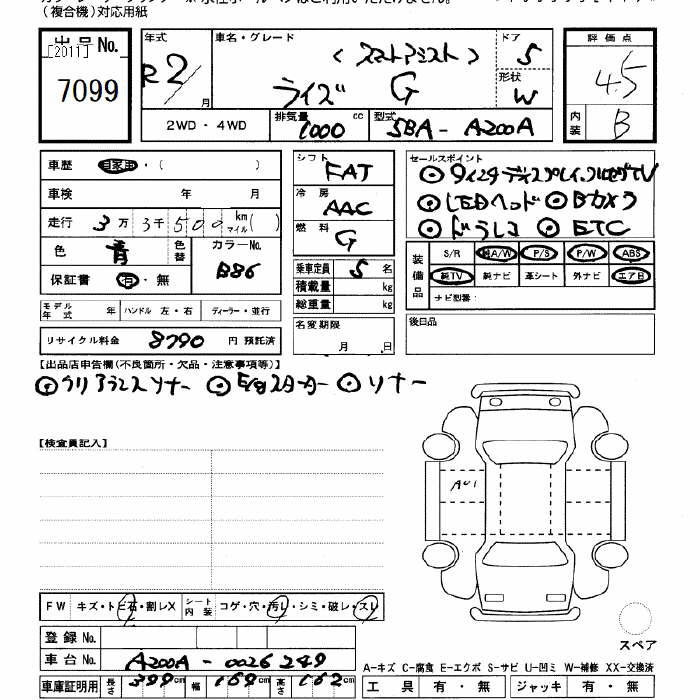 （複合機）対応用紙
出品No. [2011] 7099
年式 R2 月
車名・グレード 〈スマートアシスト〉 ライズ G
ドア 5
形状 W
評価点 4.5
内装 B
2WD・4WD 排気量 1000 cc 型式 5BA-A200A
車歴 自家用・（ ）
車検 年 月
走行 3万3千500 km マイル（ ）
色 青 色替 カラーNo. B86
保証書 有・無
モデル年式 年 ハンドル 左・右 ディーラー・並行
リサイクル料金 8790 円 預託済
シフト FAT
冷房 AAC
燃料 G
乗車定員 5 名
積載量 kg
総重量 kg
名変期限 月 日
セールスポイント
◎9インチディスプレイ、フルセグTV
◎LEDヘッド ◎Bカメラ
◎ドラレコ ◎ETC
装備品 S/R 純A/W P/S P/W ABS
純TV 純ナビ 革シート 外ナビ エアB
ナビ型番：
後日品
【出品店申告欄(不良箇所・欠品・注意事項等)】
◎クリアランスソナー ◎E/gスターター ◎ソナー
【検査員記入】
A01
FW キズ・トビ石・割レX シート内装 コゲ・穴・汚レ・シミ・破レ・スレ
登録No.
車台No. A200A-0026249
車庫証明用 長さ 399cm 幅 169cm 高さ 162cm
スペア
A-キズ C-腐食 E-エクボ S-サビ U-凹ミ W-補修 XX-交換済
工具 有・無 ジャッキ 有・無